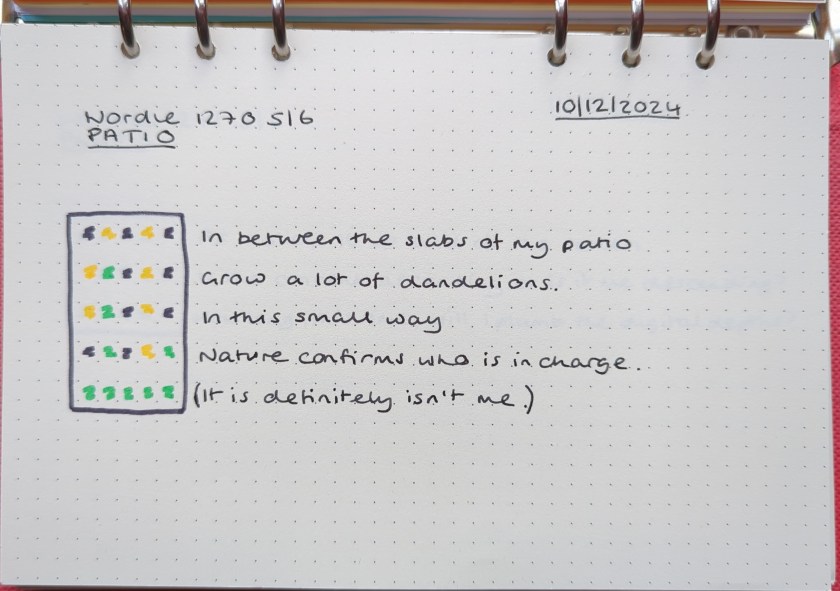 Wordle 1270 5/6
PATIO
10/12/2024
In between the slabs of my patio
Grow a lot of dandelions.
In this small way
Nature confirms who is in charge.
(It is definitely isn't me.)